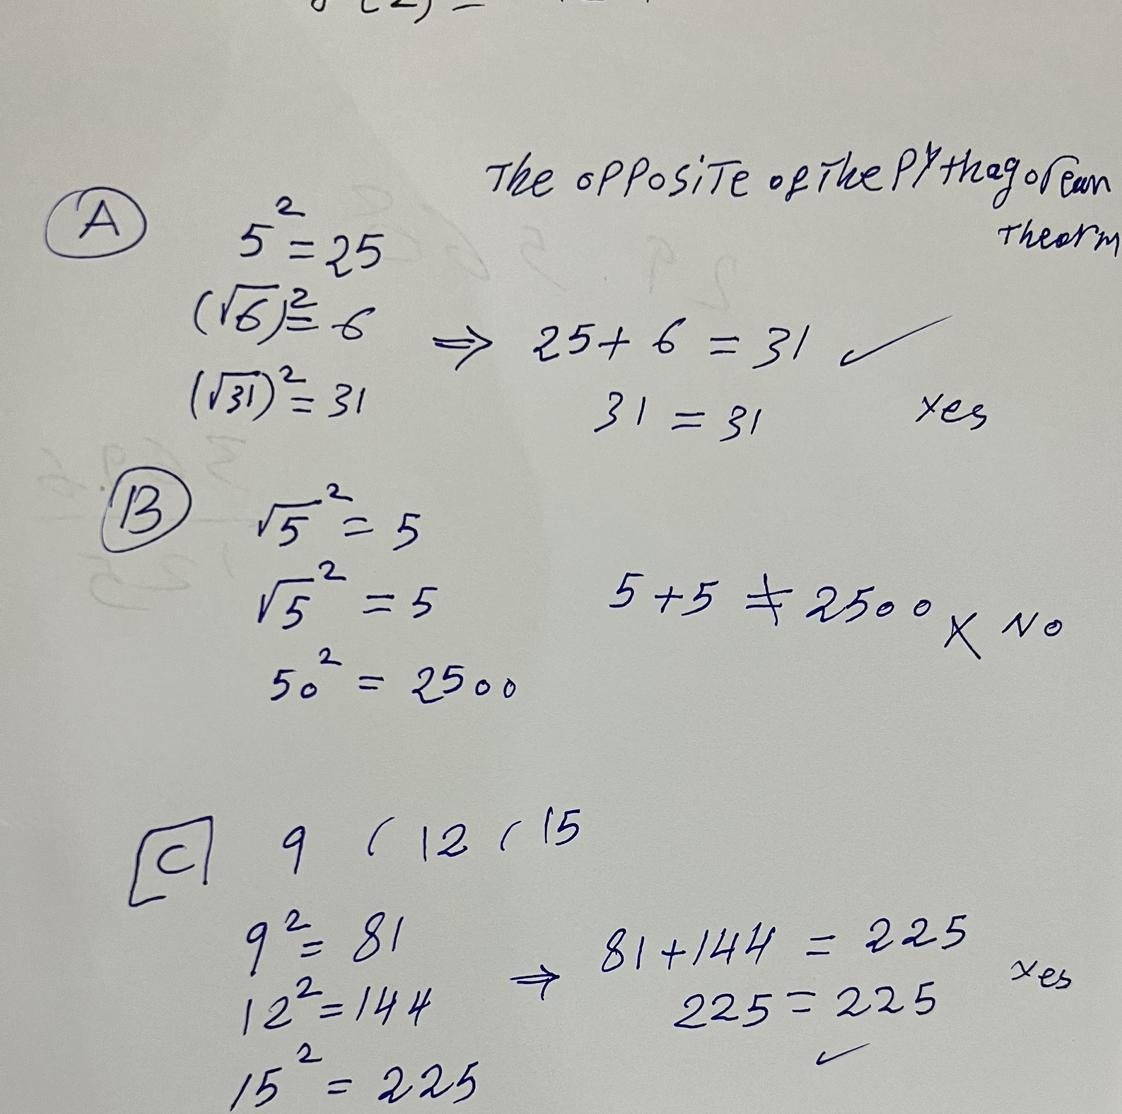 The opposite of the Pythagorean
Theorm
A
5² = 25
(√6)² = 6
(√31)² = 31
⇒ 25 + 6 = 31 ✓
31 = 31 yes
B
√5² = 5
√5² = 5
50² = 2500
5 + 5 ≠ 2500 X No
C 9 ( 12 ( 15
9² = 81
12² = 144
15² = 225
⇒ 81 + 144 = 225
225 = 225 yes
✓